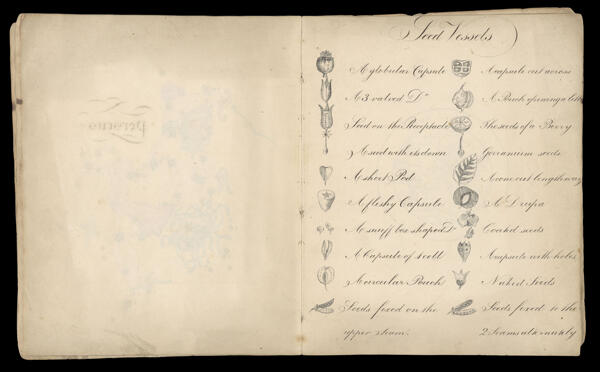 Seed Vessels
A globular Capsule
A 3 valved Do
Seed on the Receptacle
A seed with its down
A short Pod
A fleshy Capsule
A snuff box shaped Do
A Capsule of 1 cell
A circular Pouch
Seeds fixed on the
upper seam.
A capsule cut across
A Pouch opening a little
The seeds of a Berry
Geranium seeds
A cone cut lengthway
A Drupa
Coated seeds
Capsule with holes
Naked Seeds
Seeds fixed to the
2 Seams alternately